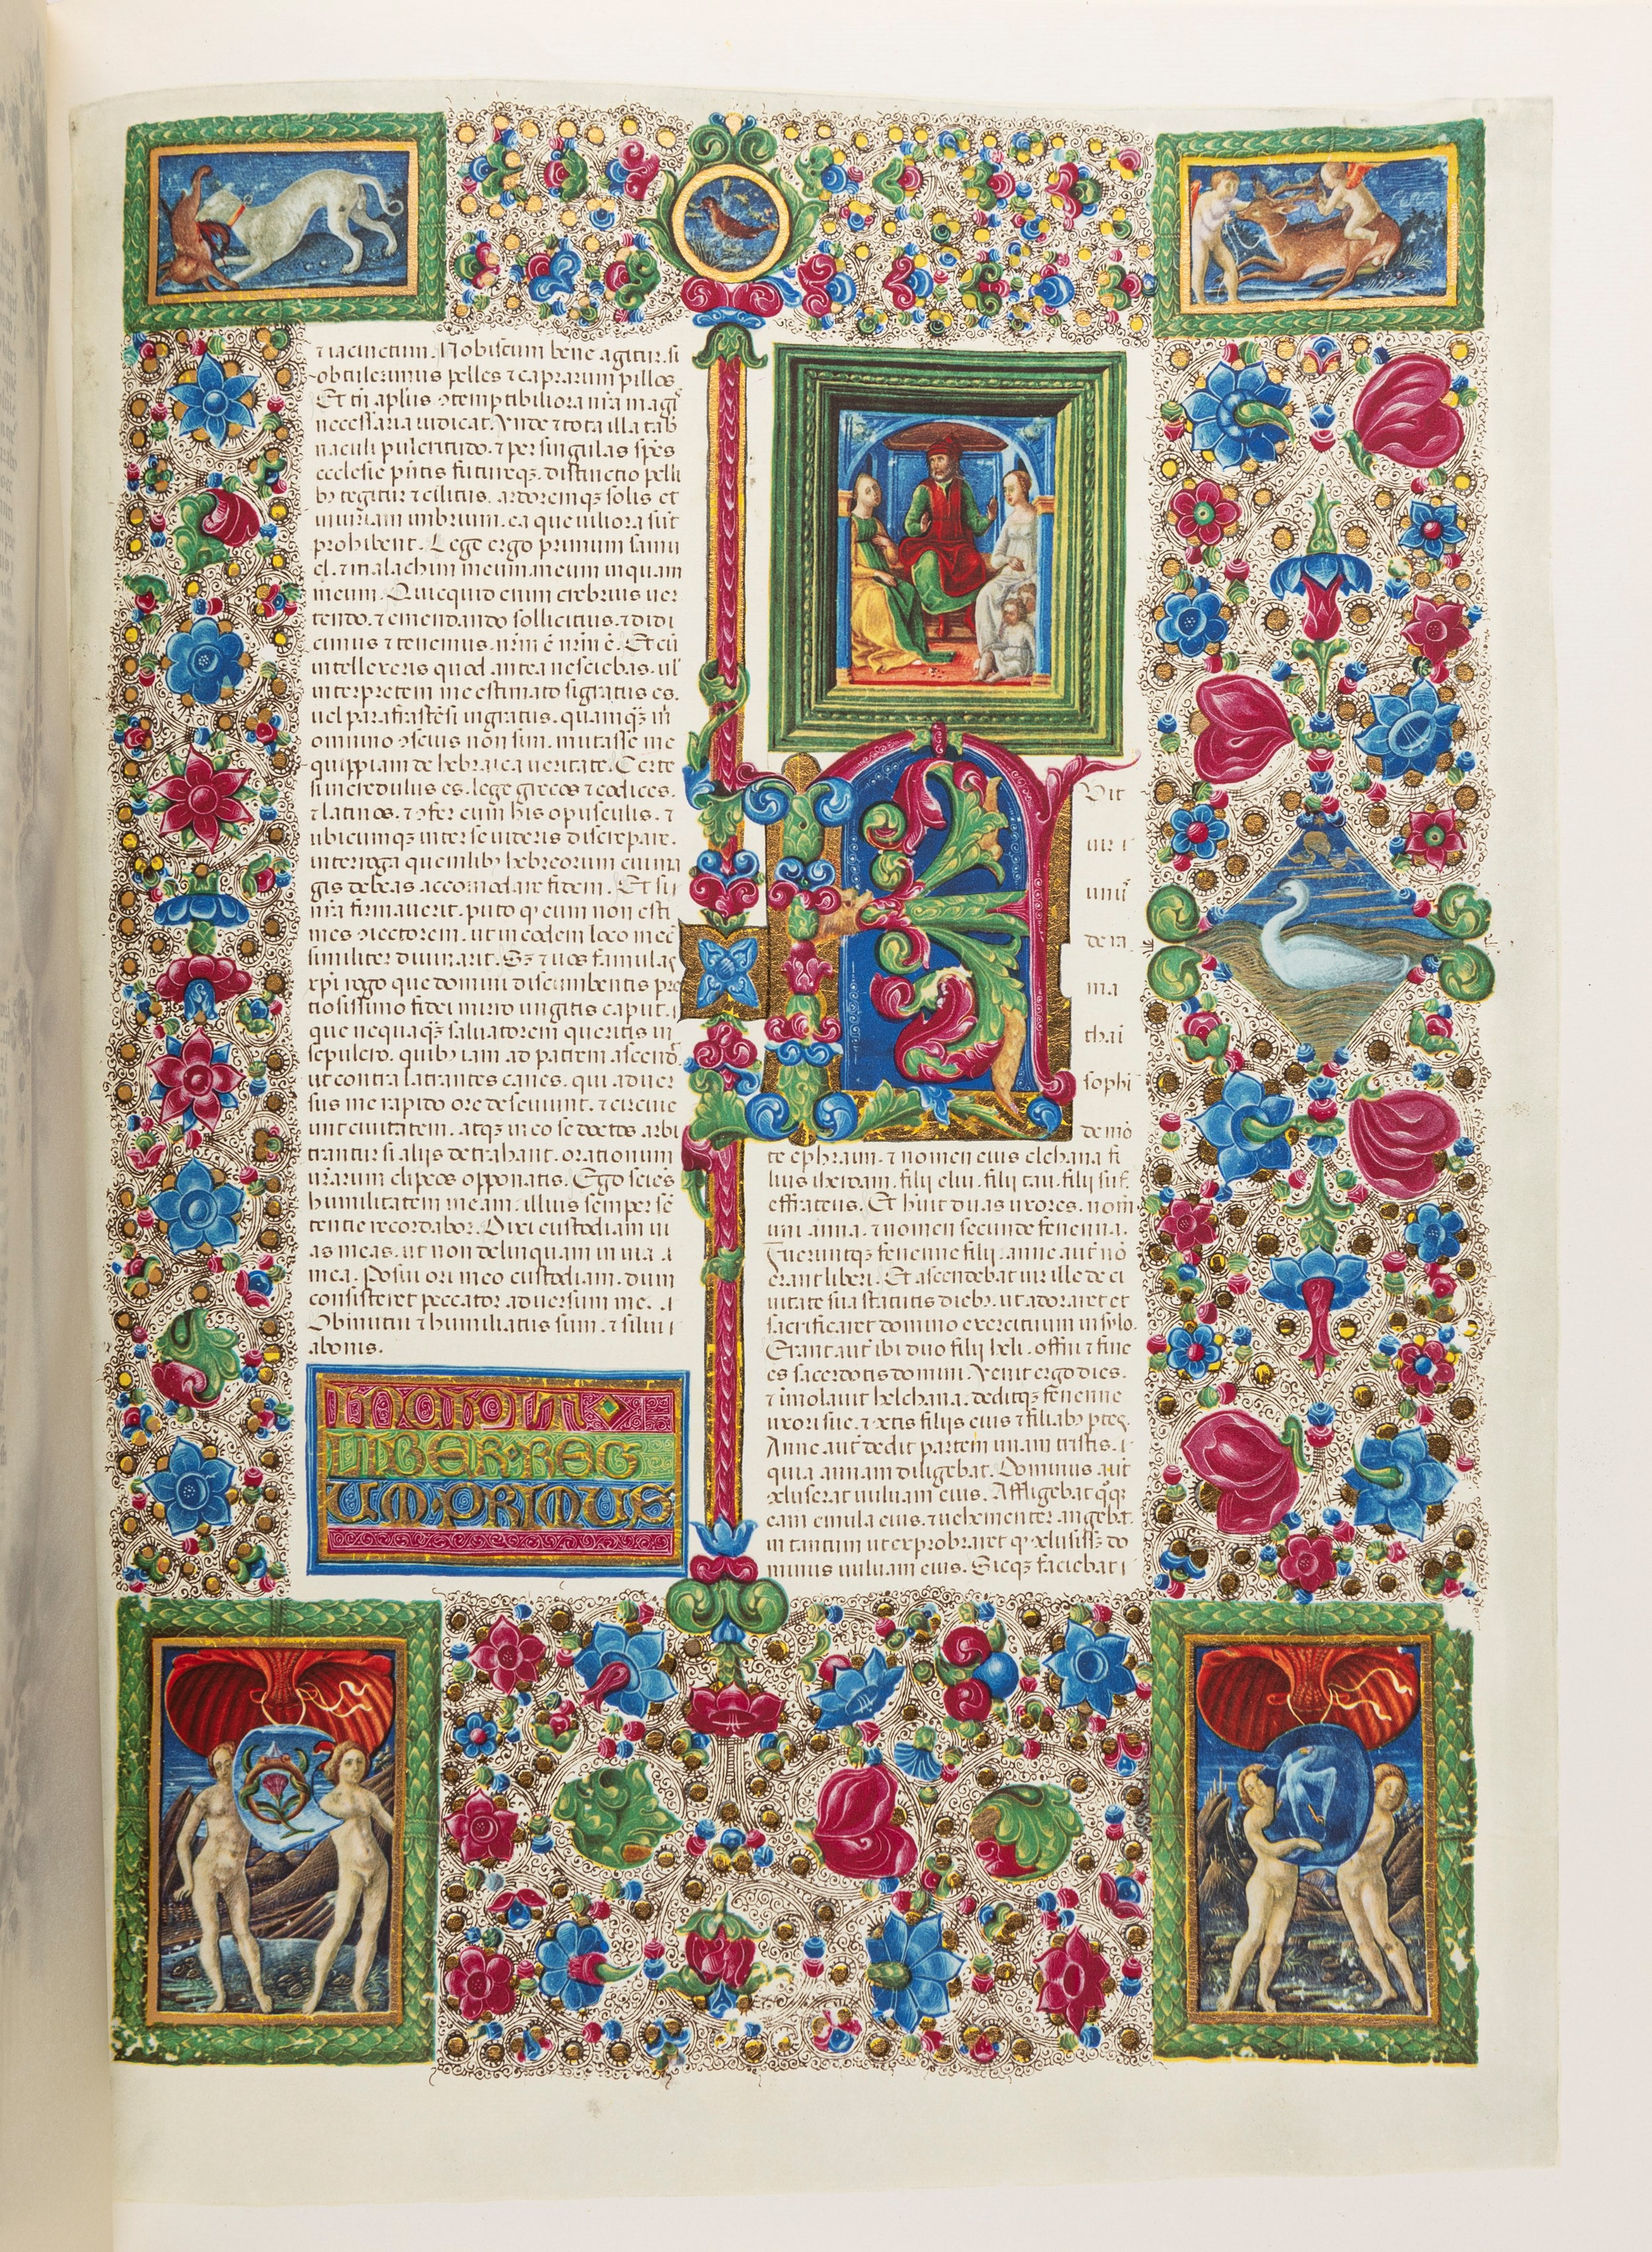 ⁊ iacinctum. Nobiscum bene agitur. si
obtulerimus pelles ⁊ caprarum pillos.
Et tn̄ aplūs ɔtemptibiliora nr̄a magꝭ
necessaria iudicat. Vnde ⁊ tota illa tab̄
naculi pulcritudo. ⁊ per singulas spēs
ecclesie pn̄tis futureqꝫ. distinctio pelli
bꝫ tegitur ⁊ cilitiis. ardoremqꝫ solis et
iniuriam imbrium. ea que uiliora sūt
prohibent. Lege ergo primum samu
el. ⁊ malachim meum. meum inquam
meum. Quicquid enim crebrius uer
tendo. ⁊ emendando sollicitius. ⁊ didi
cimus ⁊ tenemus. nr̄m ē nr̄m ē. Et cū
intellexeris quod antea nesciebas. ul'
interpretem me estimato si gratus es.
uel parafrastēsi ingratus. quamqꝫ m̄
omnino ɔscius non sim. mutasse me
quippiam de hebraica ueritate. Certe
si incredulus es. lege grecos ⁊ codices.
⁊ latinos. ⁊ ɔfer cum his opusculis. ⁊
ubicumqꝫ inter se uideris discrepare.
interroga quemlibꝫ hebreorum cui ma
gis debeas accomodare fidem. Et si
nr̄a firmauerit. puto qꝫ eum non esti
mes ɔiectorem. ut in eodem loco mec̄
similiter diuinarit. Sꝫ ⁊ uos famulas
xp̄i rogo que domini discumbentis pre
tiosissimo fidei mirro ungitis caput.
que nequaqꝫ saluatorem queritis in
sepulcro. quibꝫ iam ad patrem ascend̄
ut contra latrantes canes. qui aduer
sus me rapido ore deseuiunt. ⁊ circue
unt ciuitatem. atqꝫ in eo se doctos arbi
trantur si aliis detrahant. orationum
urārum clipeos opponatis. Ego sciēs
humilitatem meam. illius semper sē
tentie recordabor. Dixi custodiam ui
as meas. ut non delinquam in uia
mea. Posui ori meo custodiam. dum
consisteret peccator aduersum me.
Obmutui ⁊ humiliatus sum. ⁊ silui
a bonis.
INCIPIT
LIBER REG
UM PRIMUS
FUit
uir
unus
de ra
ma
thai
sophi
de mō
te ephraim. ⁊ nomen eius elchana fi
lius iheroam. filij eliu. filij tau. filij suf.
effrateus. Et hūit duas uxores. nom̄
uni anna. ⁊ nomen secunde fenenna.
Fueruntqꝫ fenenne filij. anne aūt nō
erant liberi. Et ascendebat uir ille de ci
uitate sua statutis diebꝫ. ut adoraret et
sacrificaret domino exercituum in sylo.
Erant aūt ibi duo filij heli. offni ⁊ fine
es sacerdotis domini. Venit ergo dies.
⁊ imolauit helchana. deditqꝫ fenenne
uxori sue. ⁊ cetis filiis eius ⁊ filiabꝫ ptes.
Anne aūt dedit partem unam tristis.
quia annam diligebat. Dominus aūt
ɔcluserat uuluam eius. Affligebat qqꝫ
eam emula eius. ⁊ uehementer angebat.
in tantum ut exprobraret qꝫ ɔclusisset do
minus uuluam eius. Sicqꝫ faciebat